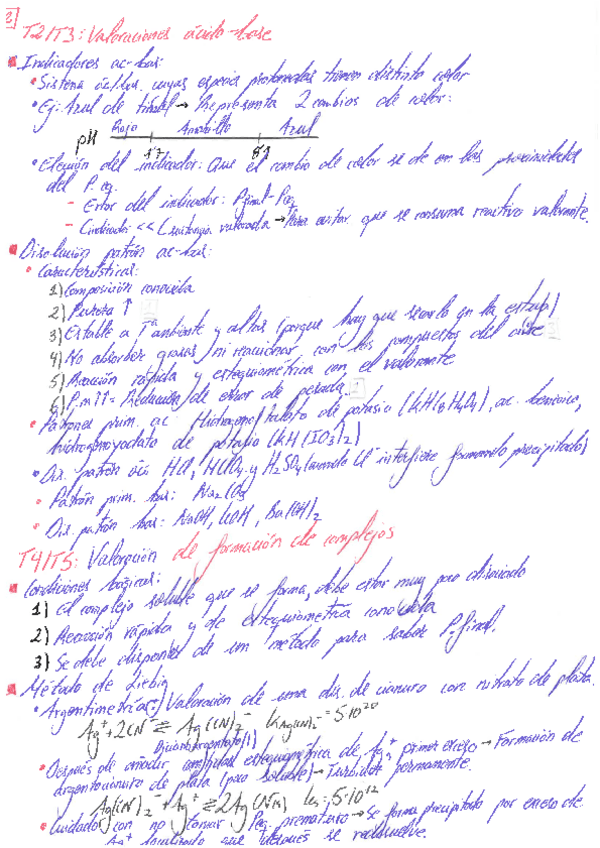 2]
T2/T3: Valoraciones ácido-base
Indicadores ac-bas:
• Sistema ác/bas. cuyas especies protonadas tienen distinto color
• Ej: Azul de timol → Representa 2 cambios de color:
pH Rojo Amarillo Azul
1'7 8'9
• Elección del indicador: Que el cambio de color se de en las proximidades
del P. eq.
- Error del indicador: Pfinal - Peq
- Cindicador << C sustancia valorada → Para evitar que se consuma reactivo valorante.
Disolución patrón ac-bas:
• Características:
1) Composición conocida
2) Pureza ↑
3) Estable a Tª ambiente y altas (porque hay que secarlo en la estufa)
4) No absorber gases, ni reaccionar con los compuestos del aire
5) Reacción rápida y estequiométrica con el valorante
6) P.m ↑↑ = Reducción de error de pesada.
• Patrones prim. ac. Hidrogenoftalato de potasio (KHC8H4O4), ac. benzoico,
hidrogenoyodato de potasio (KH(IO3)2)
• Dis. patrón ác: HCl, HClO4 y H2SO4 (cuando Cl- interfiere formando precipitado)
• Patrón prim. bas: Na2CO3
• Dis. patrón bas: NaOH, KOH, Ba(OH)2
T4/T5: Valoración de formación de complejos
Condiciones básicas:
1) El complejo soluble que se forma, debe estar muy poco disociado
2) Reacción rápida y de estequiometría conocida
3) Se debe disponer de un método para saber P. final.
Método de Liebig
• Argentimetría: Valoración de una dis. de cianuro con nitrato de plata.
Ag+ + 2CN- ⇄ Ag(CN)2- KAg(CN)2- = 5·10^20
• Después de añadir cantidad estequiométrica de Ag+, primer exceso → Formación de
argentocianuro de plata (poco soluble) → Turbidez permanente.
Ag(CN)2- + Ag+ ⇄ 2Ag(CN) = 5·10^12
• Cuidado con no tomar Peq. prematuro → Se forma precipitado por exceso de
Ag+ localizado que después se redisuelve.